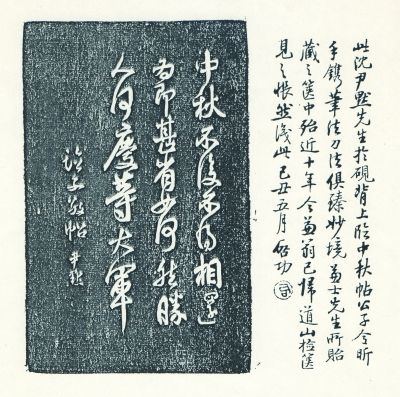 此沈尹默先生於硯背上臨中秋帖公子令昕
手鐫筆法刀法俱臻妙境兼士先生所貽
藏之篋中殆近十年今兼翁已歸道山檢篋
見之悵然識此己丑五月啓功
中秋不復不得相還
為即甚省如何然勝
人何慶等大軍
臨子敬帖 尹默